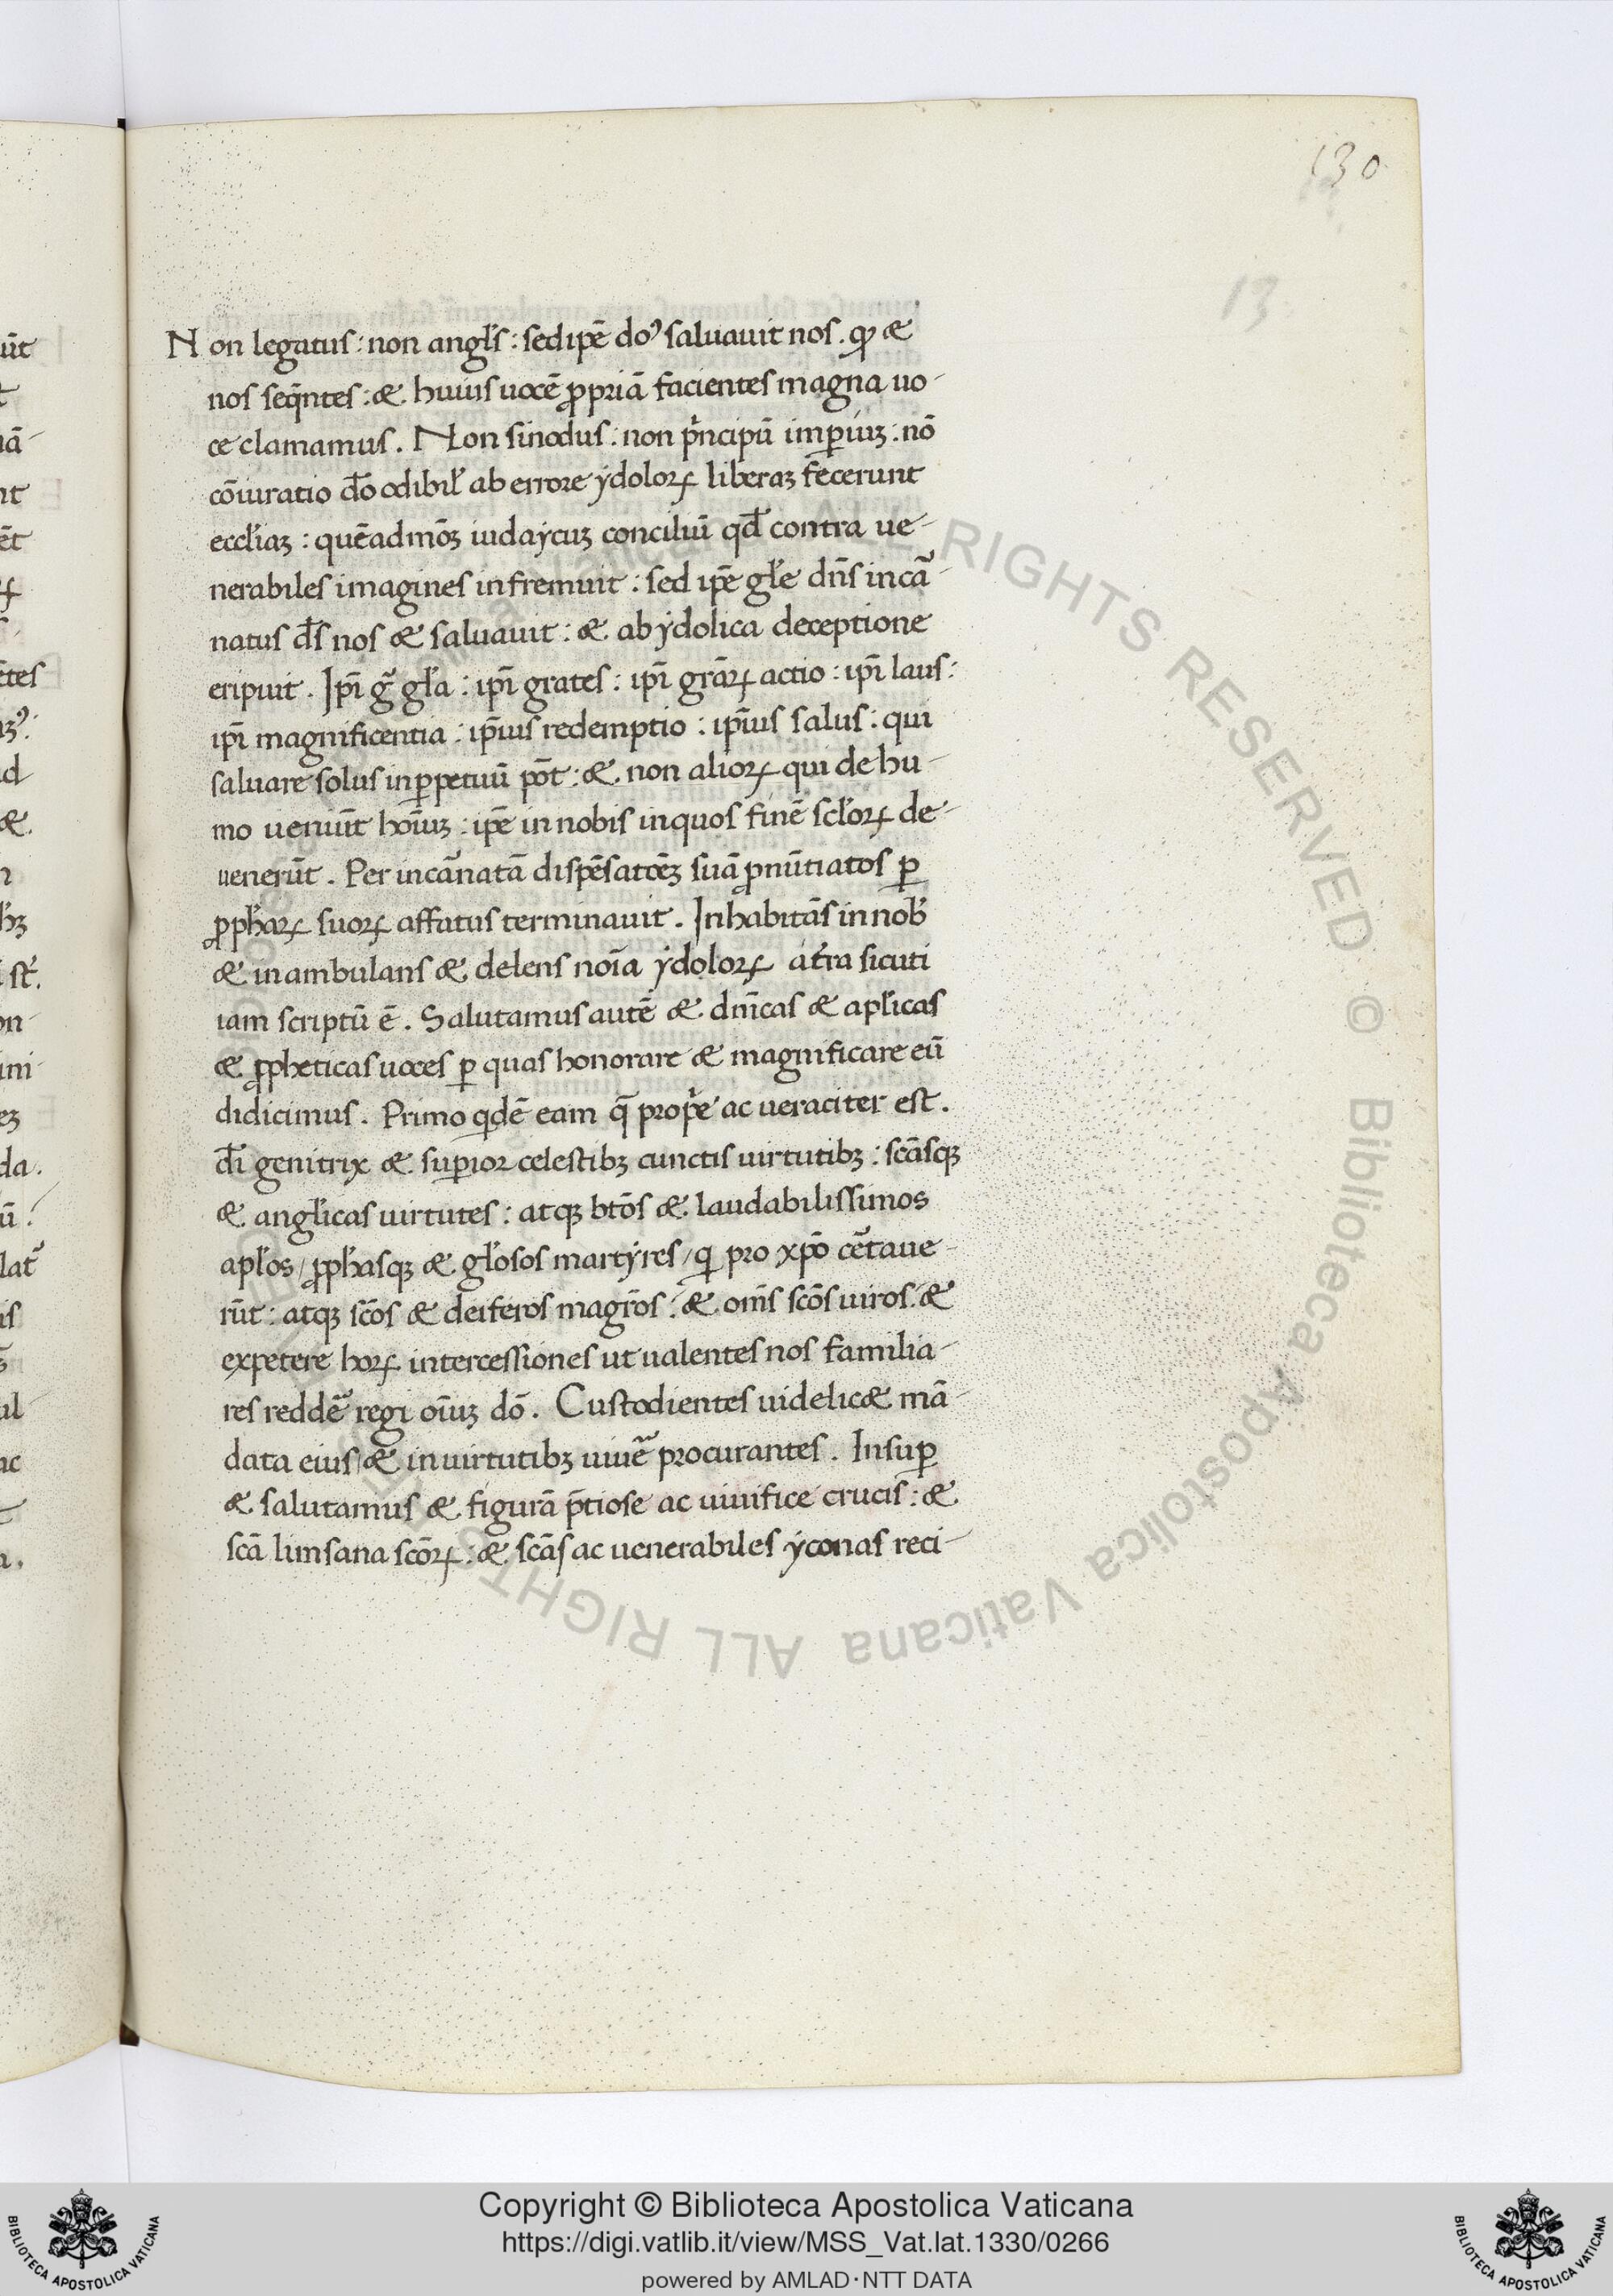 130
13
Non legatus: non angl̃s: sed ip̃e doꝰ saluauit nos. ꝙ &
nos seq̃ntes: & huius uocẽ ꝓpriã facientes magna uo-
ce clamamus. Non sinodus: non pⁱncipũ imꝑiuꝫ: nõ
cõiuratio dõ odibil̃ ab errore ydoloꝝ liberaꝫ fecerunt
eccl̃iaꝫ: quẽadmõꝫ iudaycuꝫ conciliũ qđ contra ue-
nerabiles imagines infremuit: sed ip̃e gl̃e dñs incã-
natus d̃s nos & saluauit: & ab ydolica deceptione
eripuit. Ip̃i g̃ gl̃a: ip̃i grates: ip̃i grãꝝ actio: ip̃i laus:
ip̃i magnificentia: ip̃ius redemptio: ip̃ius salus: qui
saluare solus in ꝑpetuũ põt: & non alioꝝ qui de hu-
mo ueniũt hoĩuꝫ: ip̃e in nobis in quos finẽ scl̃oꝝ de-
uenerũt. Per incãnatã dispẽsatõeꝫ suã p̃nũtiatos ꝑ
ꝓph̃aꝝ suoꝝ affatus terminauit. Inhabitãs in nob̃
& inambulans & delens noĩa ydoloꝝ at̃ra sicuti
iam scriptũ ẽ. Salutamus autẽ & dñicas & apl̃icas
& ꝓpheticas uoces ꝑ quas honorare & magnificare eũ
didicimus. Primo qⁱdẽ eam q̃ prop̃e ac ueraciter est.
d̃i genitrix & suꝑior celestibꝫ cunctis uirtutibꝫ: scãsqꝫ
& angl̃icas uirtutes: atqꝫ btõs & laudabilissimos
apl̃os / ꝓph̃asqꝫ & gl̃osos martyres / qⁱ pro xp̃o cẽtaue-
rũt: atqꝫ scõs & deiferos magr̃os: & om̃s scõs uiros: &
expetere hoꝝ intercessiones ut ualentes nos familia-
res reddẽ regi oĩuꝫ dõ. Custodientes uidelic& mã-
data eius / & in uirtutibꝫ uiuẽ procurantes. Insuꝑ
& salutamus & figurã p̃tiose ac uiuifice crucis: &
scã limsana scõꝝ: & scãs ac uenerabiles yconas reci-
© Biblioteca Apostolica Vaticana ALL RIGHTS RESERVED
Copyright © Biblioteca Apostolica Vaticana
https://digi.vatlib.it/view/MSS_Vat.lat.1330/0266
powered by AMLAD・NTT DATA
BIBLIOTECA APOSTOLICA VATICANA
BIBLIOTECA APOSTOLICA VATICANA